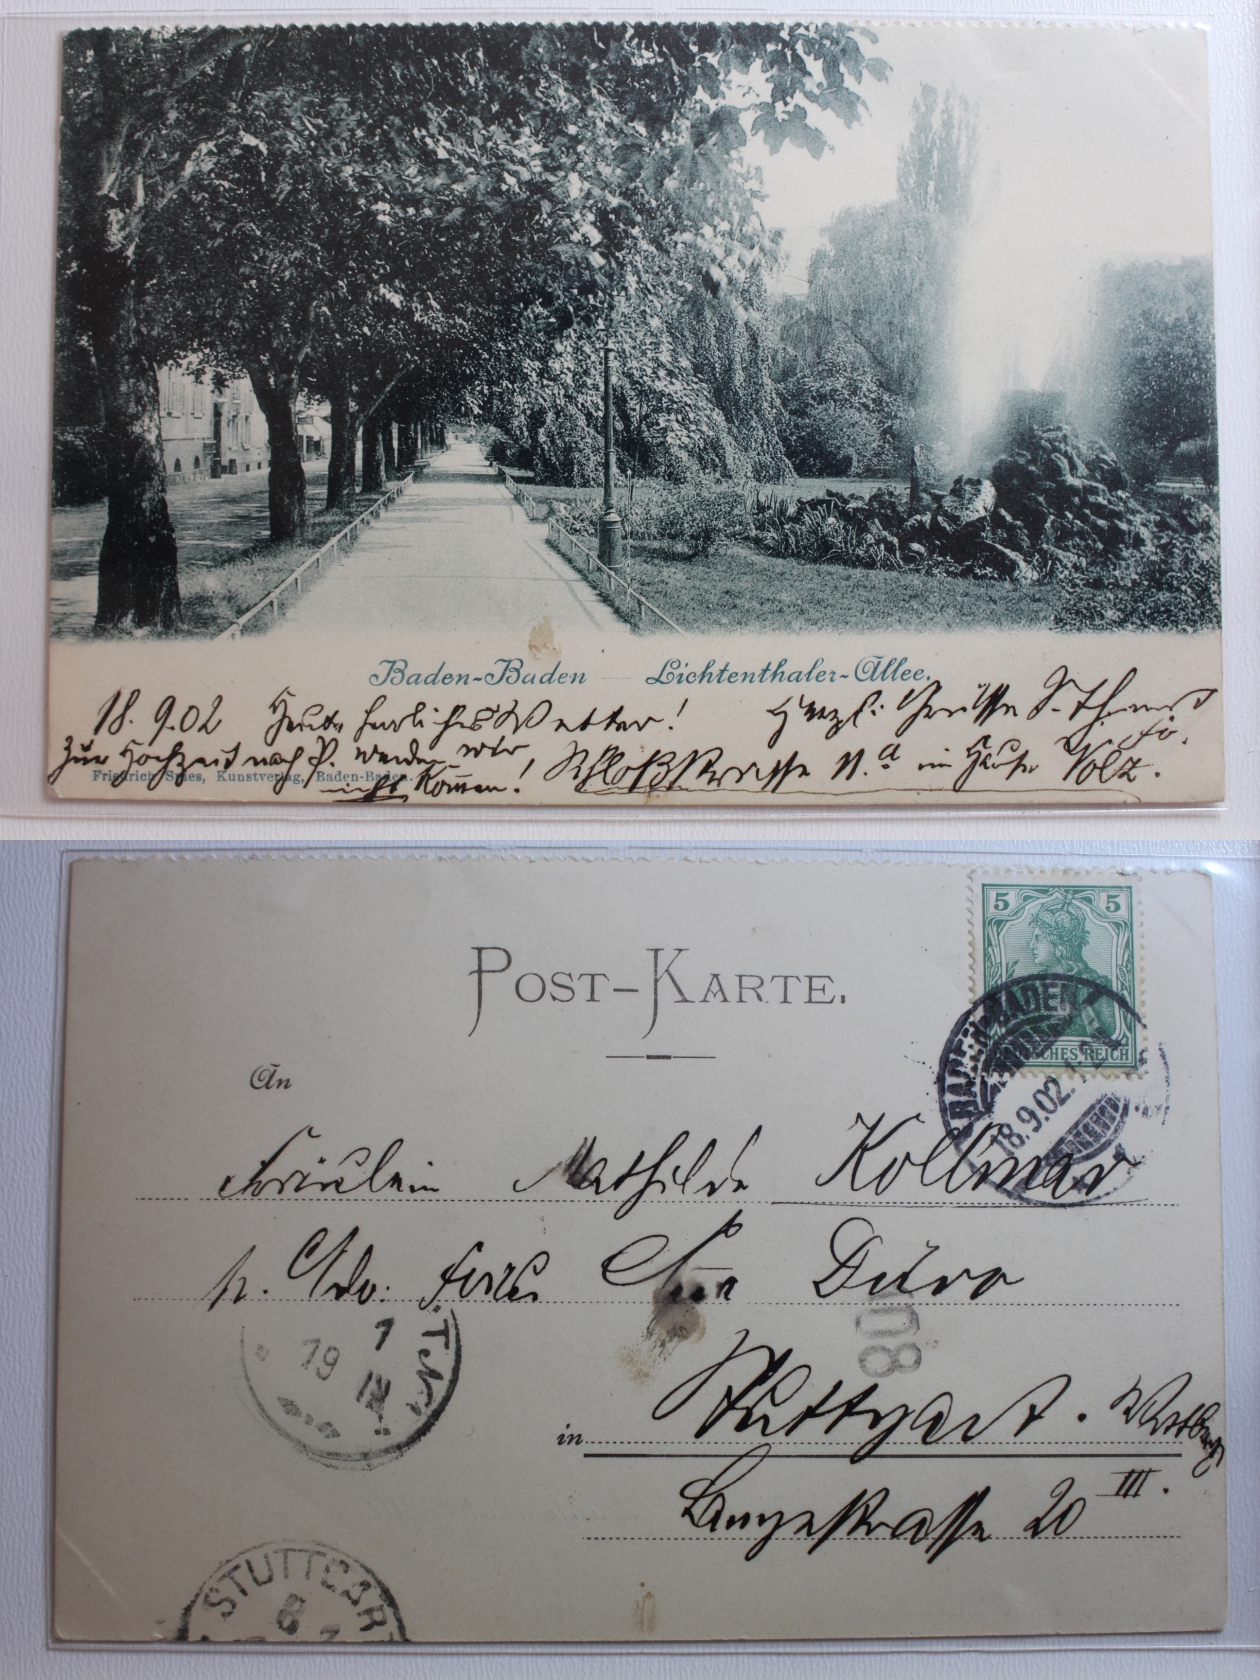 Baden-Baden — Lichtenthaler-Allee.
18. 9. 02 Heute herrliches Wetter! Herzl: Grüsse
Zur Hochzeit nach P. werden wir
nicht kommen! Schloßstrasse 11.a im Hause Volz.
Friedrich Spies, Kunstverlag, Baden-Baden.
POST-KARTE.
5 5
DEUTSCHES REICH
BADEN-BADEN
18.9.02.
An
Fräulein Mathilde Kollmar
Duro
108
in Stuttgart. Württbg
Langestrasse 20 III.
19 IX
STUTTGART
8